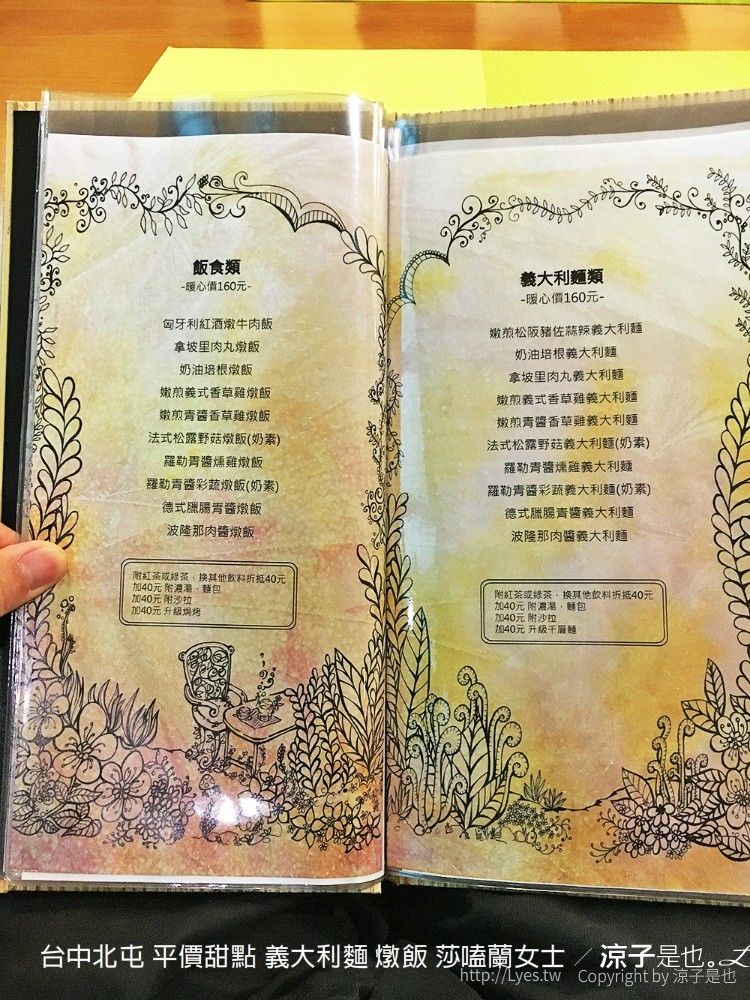 飯食類
-暖心價160元-
匈牙利紅酒燉牛肉飯
拿坡里肉丸燉飯
奶油培根燉飯
嫩煎義式香草雞燉飯
嫩煎青醬香草雞燉飯
法式松露野菇燉飯(奶素)
羅勒青醬燻雞燉飯
羅勒青醬彩蔬燉飯(奶素)
德式臘腸青醬燉飯
波隆那肉醬燉飯
附紅茶或綠茶，換其他飲料折抵40元
加40元 附濃湯、麵包
加40元 附沙拉
加40元 升級焗烤
義大利麵類
-暖心價160元-
嫩煎松阪豬佐蒜辣義大利麵
奶油培根義大利麵
拿坡里肉丸義大利麵
嫩煎義式香草雞義大利麵
嫩煎青醬香草雞義大利麵
法式松露野菇義大利麵(奶素)
羅勒青醬燻雞義大利麵
羅勒青醬彩蔬義大利麵(奶素)
德式臘腸青醬義大利麵
波隆那肉醬義大利麵
附紅茶或綠茶，換其他飲料折抵40元
加40元 附濃湯、麵包
加40元 附沙拉
加40元 升級千層麵
台中北屯 平價甜點 義大利麵 燉飯 莎嗑蘭女士 ／ 涼子是也。L
http://Lyes.tw Copyright by 涼子是也